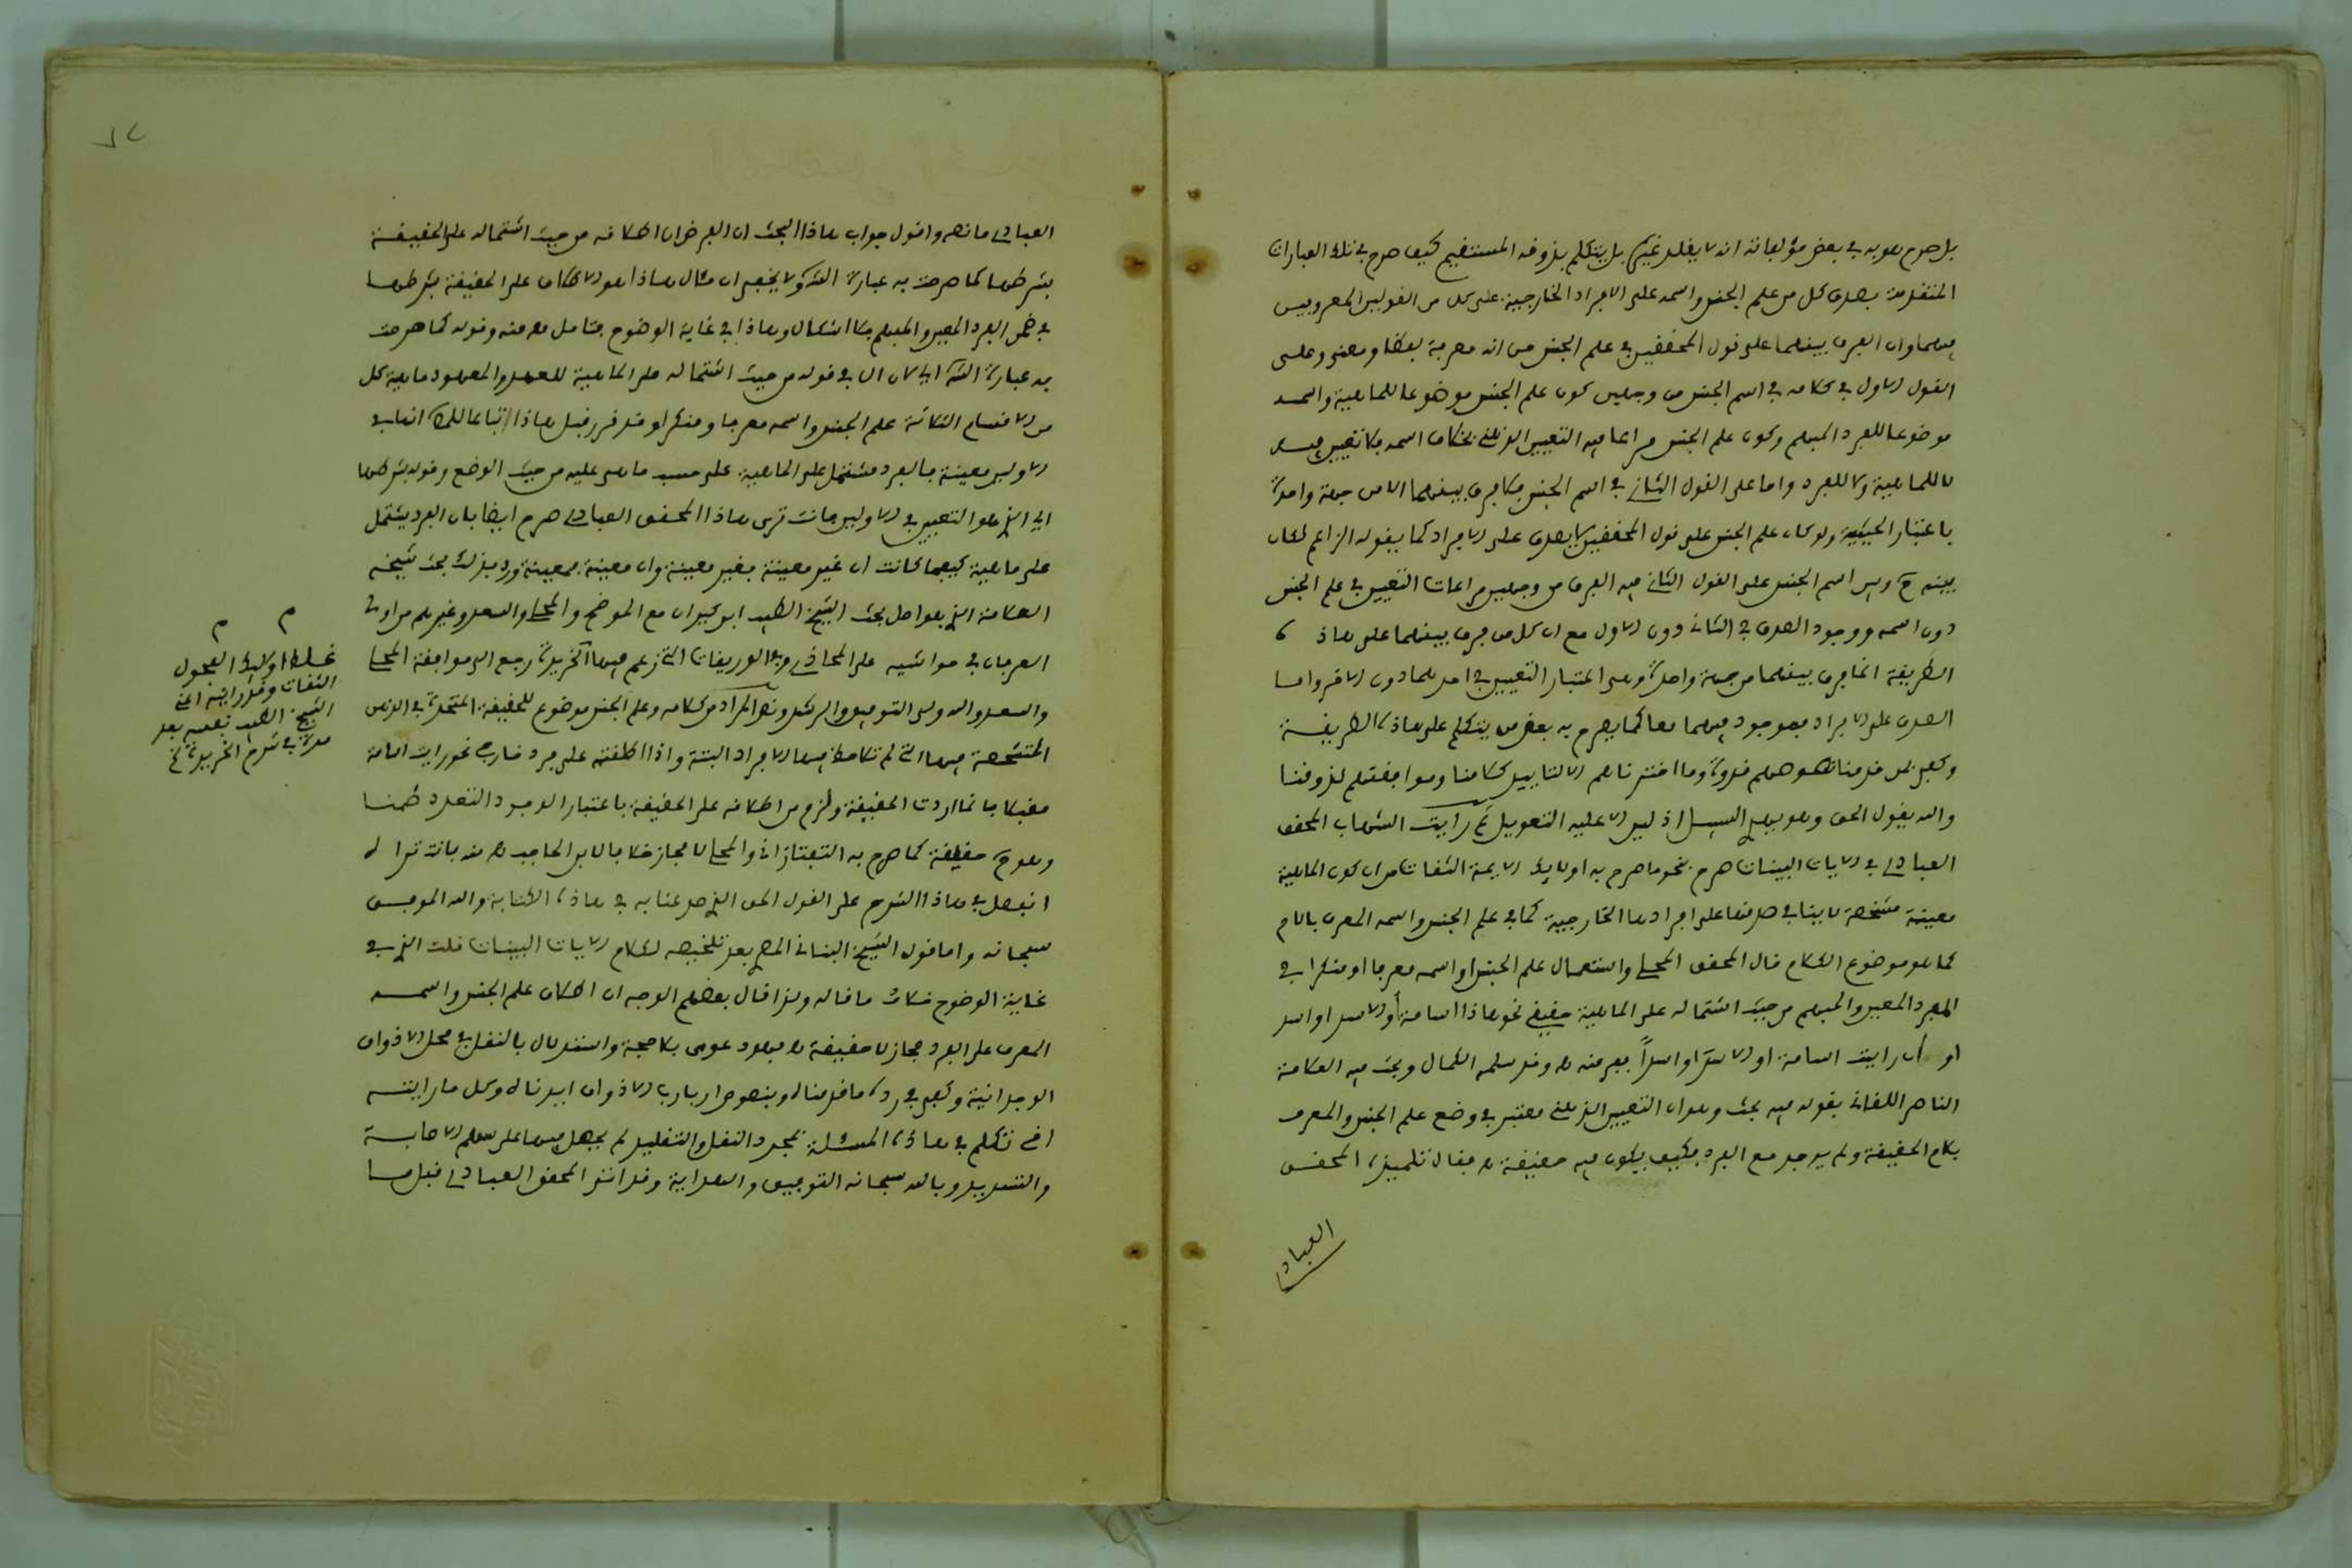 بل صرح هو به في بعض مؤلفاته انه لا يقلد غيره بل يتكلم بذوقه المستقيم كيف صرح في تلك العبارات
المتقدمة بصدق كل من علم الجنس واسمه على الافراد الخارجية على كل من القولين المعروفين
فيهما وان الفرق بينهما على قول المحققين في علم الجنس من انه معرفة لفظا ومعنى وعلى
القول الاول في كلامه في اسم الجنس من وجهين كون علم الجنس موضوعا للماهية واسمه
موضوعا للفرد المبهم وكون علم الجنس مراعا فيه التعيين الذهني بخلاف اسمه فلا تعيين فيه
لا للماهية ولا للفرد واما على القول الثاني في اسم الجنس فلا فرق بينهما الا من جهة واحدة
باعتبار الحيثية ولو كان علم الجنس على قول المحققين لا يصدق على الافراد كما يقوله الزاعم لكان
بينه ح وبين اسم الجنس على القول الثاني فيه الفرق من وجهين مراعات التعيين في علم الجنس
دون اسمه ووجود الصدق في الثاني دون الاول مع ان كل من فرق بينهما على هاذه
الطريقة انما فرق بينهما من جهة واحدة وهي اعتبار التعيين في احدهما دون الاخر واما
الصدق على الافراد فموجود فيهما معا كما يصرح به بعض من يتكلم على هاذه الطريقة
وكفى بمن قدمنا نصوصهم قدوة وما اخترناهم الا لتاييد كلامنا وموافقتهم لذوقنا
والله يقول الحق وهو يهدي السبيل اذ ليس الا عليه التعويل ثم رايت الشهاب المحقق
العبادي في الايات البينات صرح بنحو ما صرح به اولايك الايمة الثقات من ان كون الماهية
معينة مشخصة لا ينافي صدقها على افرادها الخارجية كما في علم الجنس واسمه المعرف باللام
كما هو موضوع الكلام قال المحقق المحلي واستعمال علم الجنس او اسمه معرفا او منكرا في
الفرد المعين والمبهم من حيث اشتماله على الماهية حقيقي نحو هاذا اسامة أو الاسد او اسد
او ان رايت اسامة او الاسد او اسداً ففر منه اه وقد سلمه الكمال وبحث فيه العلامة
الناصر اللقاني بقوله فيه بحث وهو ان التعيين الذهني معتبر في وضع علم الجنس والمعرف
بلام الحقيقة ولم يوجد مع الفرد فكيف يكون فيه حقيقة اه فقال تلميذه المحقق
العبادي
العبادي ما نصه واقول جواب هاذا البحث ان الغرض ان اطلاقه من حيث اشتماله على الحقيقة
بشرطها كما صرحت به عبارة الشرح ولا يخفى ان مثال هاذا هو الاطلاق على الحقيقة بشرطها
في ضمن الفرد المعين والمبهم فلا اشكال وهاذا في غاية الوضوح فتامل اه منه وقوله كما صرحت
به عبارة الشرح اي لان ال في قوله من حيث اشتماله على الماهية للعهد والمعهود ماهية كل
من الاقسام الثلاثة علم الجنس واسمه معرفا ومنكرا وقد قرر قبل هاذا اتباعا للمح انها في
الاولين معينة فالفرد مشتمل على الماهية على حسب ما هي عليه من حيث الوضع وقوله بشرطها
اي الذي هو التعيين في الاولين فانت ترى هاذا المحقق العبادي صرح ايضا بان الفرد يشتمل
على ماهية كيفما كانت ان غير معينة فغير معينة وان معينة فمعينة ورد بذلك بحث شيخه
العلامة الذي هو اصل بحث الشيخ الطيب ابن كيران مع الموضح والمحلي والسعد وغيرهم من اولي
العرفان في حواشيه على المحاذي وهي الوريقات التي زعم فيها آخريرة رجع الى موافقة المحلي
والسعد والله ولي التوفيق والرشد ونص المراد من كلامه وعلم الجنس موضوع للحقيقة المتحدة في الذهن
المتشخصة فيها التي لم تلاحظ فيها الافراد البتة واذا اطلقته على فرد خارجي نحو رايت اسامة
مقبلا فانما اردت الحقيقة ولزم من اطلاقه على الحقيقة باعتبار الوجود التعدد ضمنا
وهو ح حقيقة كما صرح به التفتازاني والمحلي لا مجاز خلافا لابن الحاجب اه منه فانت تراه
انفصل في هاذا الشرح على القول الحق الذي صدعنا به في هاذه الكتابة والله الموفق
سبحانه واما قول الشيخ البناني المصري بعد تلخيصه لكلام الايات البينات قلت الذي في
غاية الوضوح خلاف ما قاله ولذا قال بعضهم الوجه ان اطلاق علم الجنس واسمه
المعرف على الفرد مجاز لا حقيقة اه فهو دعوى بلا حجة واستدلال بالنقل في محل الاذواق
الوجدانية وكفى في رده ما قدمناه وبنصوص ارباب الاذواق ايدناه وكل ما رايته
اخي تكلم في هاذه المسئلة بمجرد النقل والتقليد لم يحصل فيها على سهم الاصابة
والتسديد وبالله سبحانه التوفيق والهداية وقد اشار المحقق العبادي قبل ما
غلط اولايك الفحول
الثقات وقد رايته اعني
الشيخ الطيب نفسه بعد
مدة في شرح الخريدة